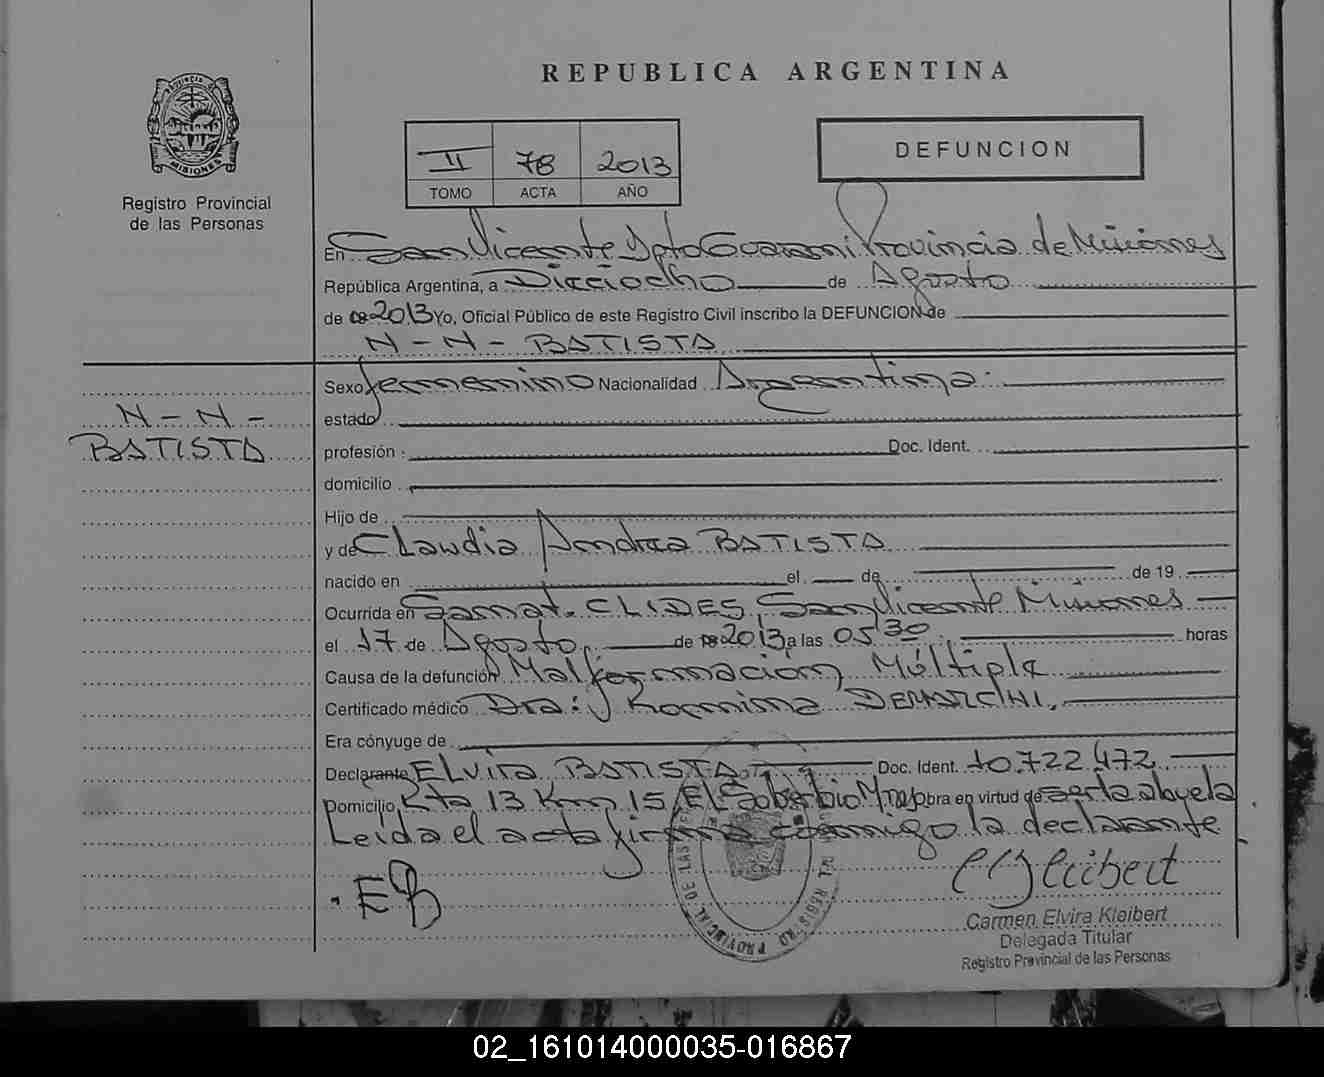 REPUBLICA ARGENTINA
PROVINCIA DE MISIONES
Registro Provincial
de las Personas
II 78 2013
TOMO ACTA AÑO
DEFUNCION
En San Vicente Dpto Guarani Provincia de Misiones
República Argentina, a Dieciocho de Agosto
de 2013 Yo, Oficial Público de este Registro Civil inscribo la DEFUNCION de
N - N - BATISTA
Sexo femenino Nacionalidad Argentina.
N - N -
BATISTA
estado
profesión : Doc. Ident.
domicilio
Hijo de
y de Claudia Andrea BATISTA
nacido en el de de 19
Ocurrida en Sanat. CLIDES, San Vicente Misiones
el 17 de Agosto de 2013 a las 05 30 horas
Causa de la defunción Malformación Múltiple
Certificado médico Dra: Romina DEMARCHI.
Era cónyuge de
Declarante ELvira BATISTA Doc. Ident. 10.722.472
Domicilio Kta 13 Km 15 El Soberbio Mnes Obra en virtud de ser la abuela.
Leida el acta firma conmigo la declarante
EB
Carmen Elvira Kleibert
Delegada Titular
Registro Provincial de las Personas
02_161014000035-016867